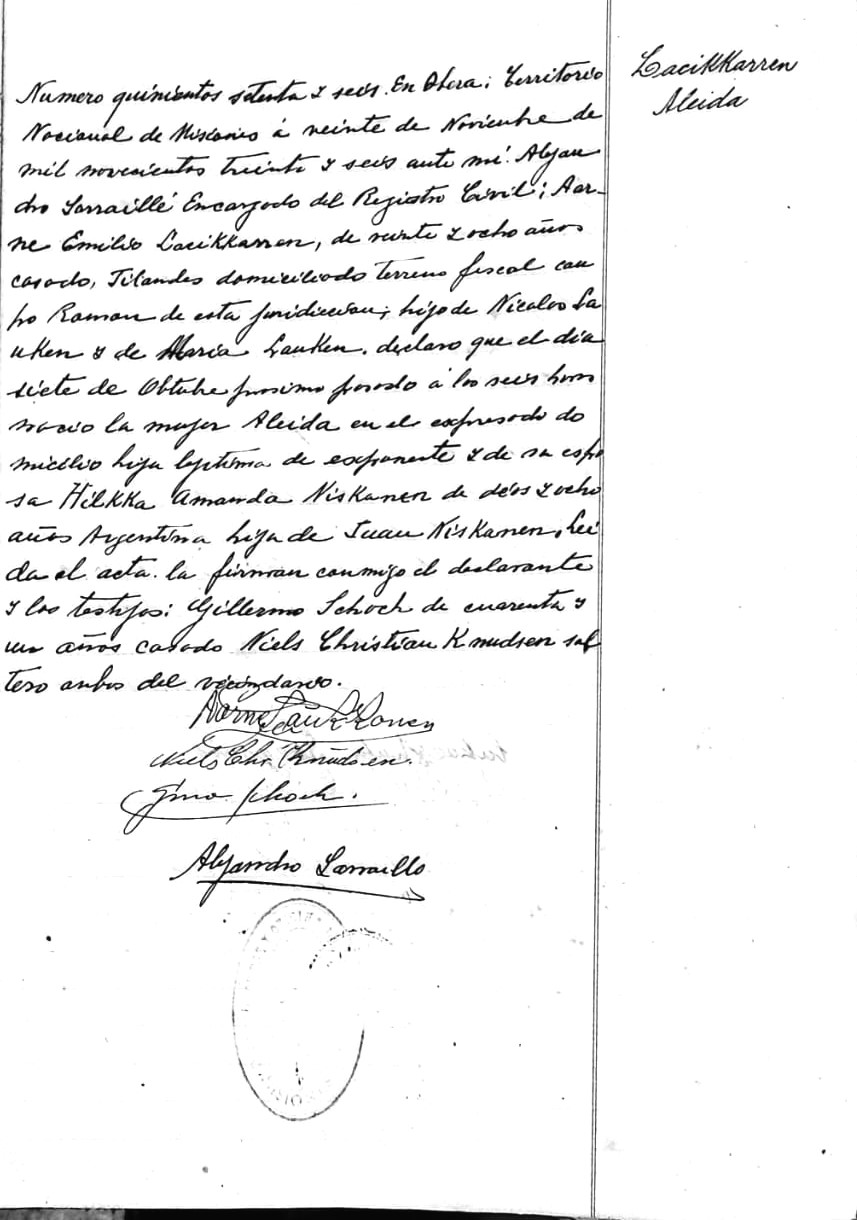 Lacikkarren
Aleida
Numero quinientos setenta y seis. En Obera; Territorio
Nacional de Misiones á veinte de Noviembre de
mil novecientos treinta y seis ante mí. Alejan
dro Sarraillé Encargado del Registro Civil; Aar-
ne Emilio Lacikkarren, de veinte y ocho años
casado, Filandes domiciliado terreno fiscal cam
po Ramon de esta juridiccion; hijo de Nicolas La
uken y de Maria Lauken. declaro que el dia
siete de Obtubre proximo pasado á las seis horas
nacio la mujer Aleida en el expresado do
micilio hija legitima de exponente y de su espo
sa Hilkka Amanda Niskanen de diez y ocho
años Argentina hija de Juan Niskanen. Lei
da el acta. la firman conmigo el declarante
y los testigos: Gillermo Schoch de cuarenta y
un años casado Niels Christian Knudsen sol
tero anbos del vecindario.
Aarne Laukkanen
Niels Chr. Knudsen.
Schoch.
Alejandro Sarraille